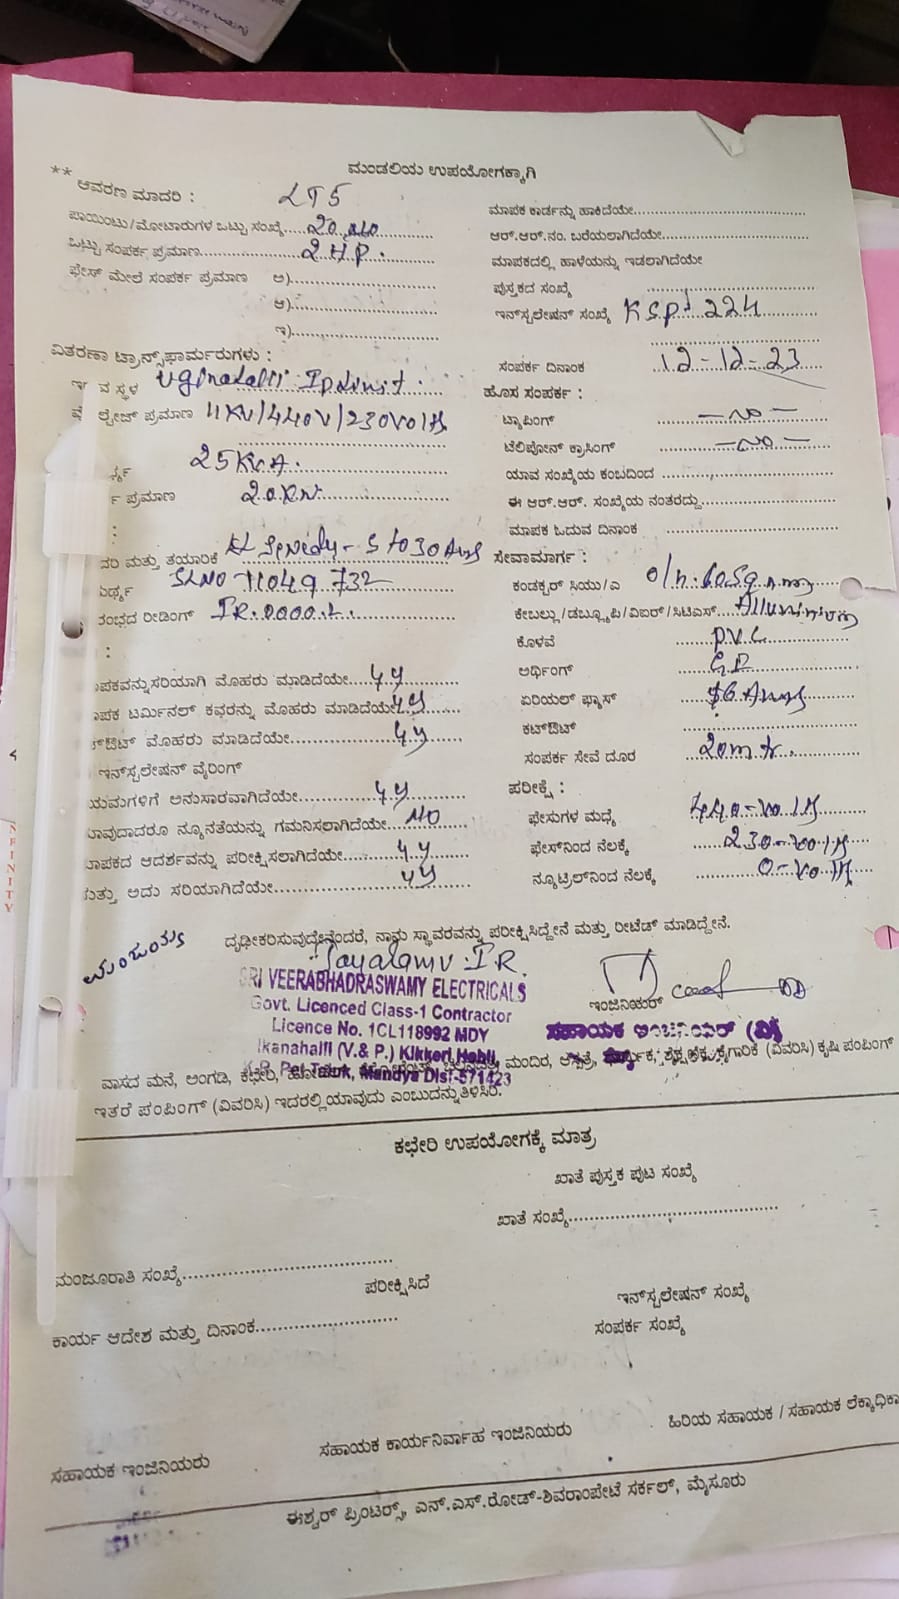 ಮಂಡಲಿಯ ಉಪಯೋಗಕ್ಕಾಗಿ
** ಆವರಣ ಮಾದರಿ : LT5
ಪಾಯಿಂಟು/ಮೋಟಾರುಗಳ ಒಟ್ಟು ಸಂಖ್ಯೆ....20
ಒಟ್ಟು ಸಂಪರ್ಕ ಪ್ರಮಾಣ....2 H.P.
ಫೇಸ್ ಮೇಲೆ ಸಂಪರ್ಕ ಪ್ರಮಾಣ ಅ)....
ಆ)....
ಇ)....
ವಿತರಣಾ ಟ್ರಾನ್ಸ್‌ಫಾರ್ಮರುಗಳು :
ವ ಸ್ಥಳ
ಲ್ಟೇಜ್ ಪ್ರಮಾಣ 11KV/440V/230Volts
25KVA.
ಪ್ರಮಾಣ 20.KW
:
ದರಿ ಮತ್ತು ತಯಾರಿಕೆ 5 to 30 Amps
SLNO 11049732
ತಂಭದ ರೀಡಿಂಗ್ IR.0000.2.
:
ಾಪಕವನ್ನು ಸರಿಯಾಗಿ ಮೊಹರು ಮಾಡಿದೆಯೇ....
ಾಪಕ ಟರ್ಮಿನಲ್ ಕವರನ್ನು ಮೊಹರು ಮಾಡಿದೆಯೇ
ಔಟ್ ಮೊಹರು ಮಾಡಿದೆಯೇ....
ಇನ್‌ಸ್ಟಲೇಷನ್ ವೈರಿಂಗ್
ಯಮಗಳಿಗೆ ಅನುಸಾರವಾಗಿದೆಯೇ....
ಾವುದಾದರೂ ನ್ಯೂನತೆಯನ್ನು ಗಮನಿಸಲಾಗಿದೆಯೇ..NO
ಾಪಕದ ಆದರ್ಶವನ್ನು ಪರೀಕ್ಷಿಸಲಾಗಿದೆಯೇ....
ಮತ್ತು ಅದು ಸರಿಯಾಗಿದೆಯೇ....
ಮಾಪಕ ಕಾರ್ಡನ್ನು ಹಾಕಿದೆಯೇ....
ಆರ್.ಆರ್.ನಂ. ಬರೆಯಲಾಗಿದೆಯೇ....
ಮಾಪಕದಲ್ಲಿ ಹಾಳೆಯನ್ನು ಇಡಲಾಗಿದೆಯೇ
ಪುಸ್ತಕದ ಸಂಖ್ಯೆ
ಇನ್‌ಸ್ಟಲೇಷನ್ ಸಂಖ್ಯೆ KSP 224
ಸಂಪರ್ಕ ದಿನಾಂಕ 12-12-23
ಹೊಸ ಸಂಪರ್ಕ :
ಟ್ಯಾಪಿಂಗ್ — no —
ಟೆಲಿಪೋನ್ ಕ್ರಾಸಿಂಗ್ — no —
ಯಾವ ಸಂಖ್ಯೆಯ ಕಂಬದಿಂದ ....
ಈ ಆರ್.ಆರ್. ಸಂಖ್ಯೆಯ ನಂತರದ್ದು....
ಮಾಪಕ ಓದುವ ದಿನಾಂಕ ....
ಸೇವಾಮಾರ್ಗ :
ಕಂಡಕ್ಟರ್ ಸಿಯು/ಎ O/h.60Sq mm
ಕೇಬಲ್ಲು/ಡಬ್ಲ್ಯೂಪಿ/ವಿಐಆರ್/ಸಿಟಿಎಸ್....Alluminium
ಕೊಳವೆ P.V.C
ಅರ್ಥಿಂಗ್
ಏರಿಯಲ್ ಫ್ಯೂಸ್ Amps
ಕಟ್‌ಔಟ್
ಸಂಪರ್ಕ ಸೇವೆ ದೂರ 20mtr.
ಪರೀಕ್ಷೆ :
ಫೇಸುಗಳ ಮಧ್ಯೆ 440-volts
ಫೇಸ್‌ನಿಂದ ನೆಲಕ್ಕೆ 230-volts
ನ್ಯೂಟ್ರಲ್‌ನಿಂದ ನೆಲಕ್ಕೆ 0-volts
ದೃಢೀಕರಿಸುವುದೇನೆಂದರೆ, ನಾನು ಸ್ಥಾವರವನ್ನು ಪರೀಕ್ಷಿಸಿದ್ದೇನೆ ಮತ್ತು ರೀಟೆಡ್ ಮಾಡಿದ್ದೇನೆ.
SRI VEERABHADRASWAMY ELECTRICALS
Govt. Licenced Class-1 Contractor
Licence No. 1CL118992 MDY
Ikanahalli (V.& P.) Kikkeri Hobli,
K.R. Pet Taluk, Mandya Dist-571423
ಇಂಜಿನಿಯರ್
ಸಹಾಯಕ ಇಂಜಿನಿಯರ್ (ವಿ)
ವಾಸದ ಮನೆ, ಅಂಗಡಿ, ಕಛೇರಿ, ಮಂದಿರ, ಆಸ್ಪತ್ರೆ, ಕೈಗಾರಿಕೆ (ವಿವರಿಸಿ) ಕೃಷಿ ಪಂಪಿಂಗ್
ಇತರೆ ಪಂಪಿಂಗ್ (ವಿವರಿಸಿ) ಇದರಲ್ಲಿ ಯಾವುದು ಎಂಬುದನ್ನು ತಿಳಿಸಿರಿ.
ಕಛೇರಿ ಉಪಯೋಗಕ್ಕೆ ಮಾತ್ರ
ಖಾತೆ ಪುಸ್ತಕ ಪುಟ ಸಂಖ್ಯೆ
ಖಾತೆ ಸಂಖ್ಯೆ....
ಮಂಜೂರಾತಿ ಸಂಖ್ಯೆ....
ಪರೀಕ್ಷಿಸಿದೆ
ಇನ್‌ಸ್ಟಲೇಷನ್ ಸಂಖ್ಯೆ
ಕಾರ್ಯ ಆದೇಶ ಮತ್ತು ದಿನಾಂಕ....
ಸಂಪರ್ಕ ಸಂಖ್ಯೆ
ಸಹಾಯಕ ಇಂಜಿನಿಯರು
ಸಹಾಯಕ ಕಾರ್ಯನಿರ್ವಾಹ ಇಂಜಿನಿಯರು
ಹಿರಿಯ ಸಹಾಯಕ / ಸಹಾಯಕ ಲೆಕ್ಕಾಧಿಕಾ
ಈಶ್ವರ್ ಪ್ರಿಂಟರ್ಸ್, ಎನ್.ಎಸ್.ರೋಡ್-ಶಿವರಾಂಪೇಟೆ ಸರ್ಕಲ್, ಮೈಸೂರು